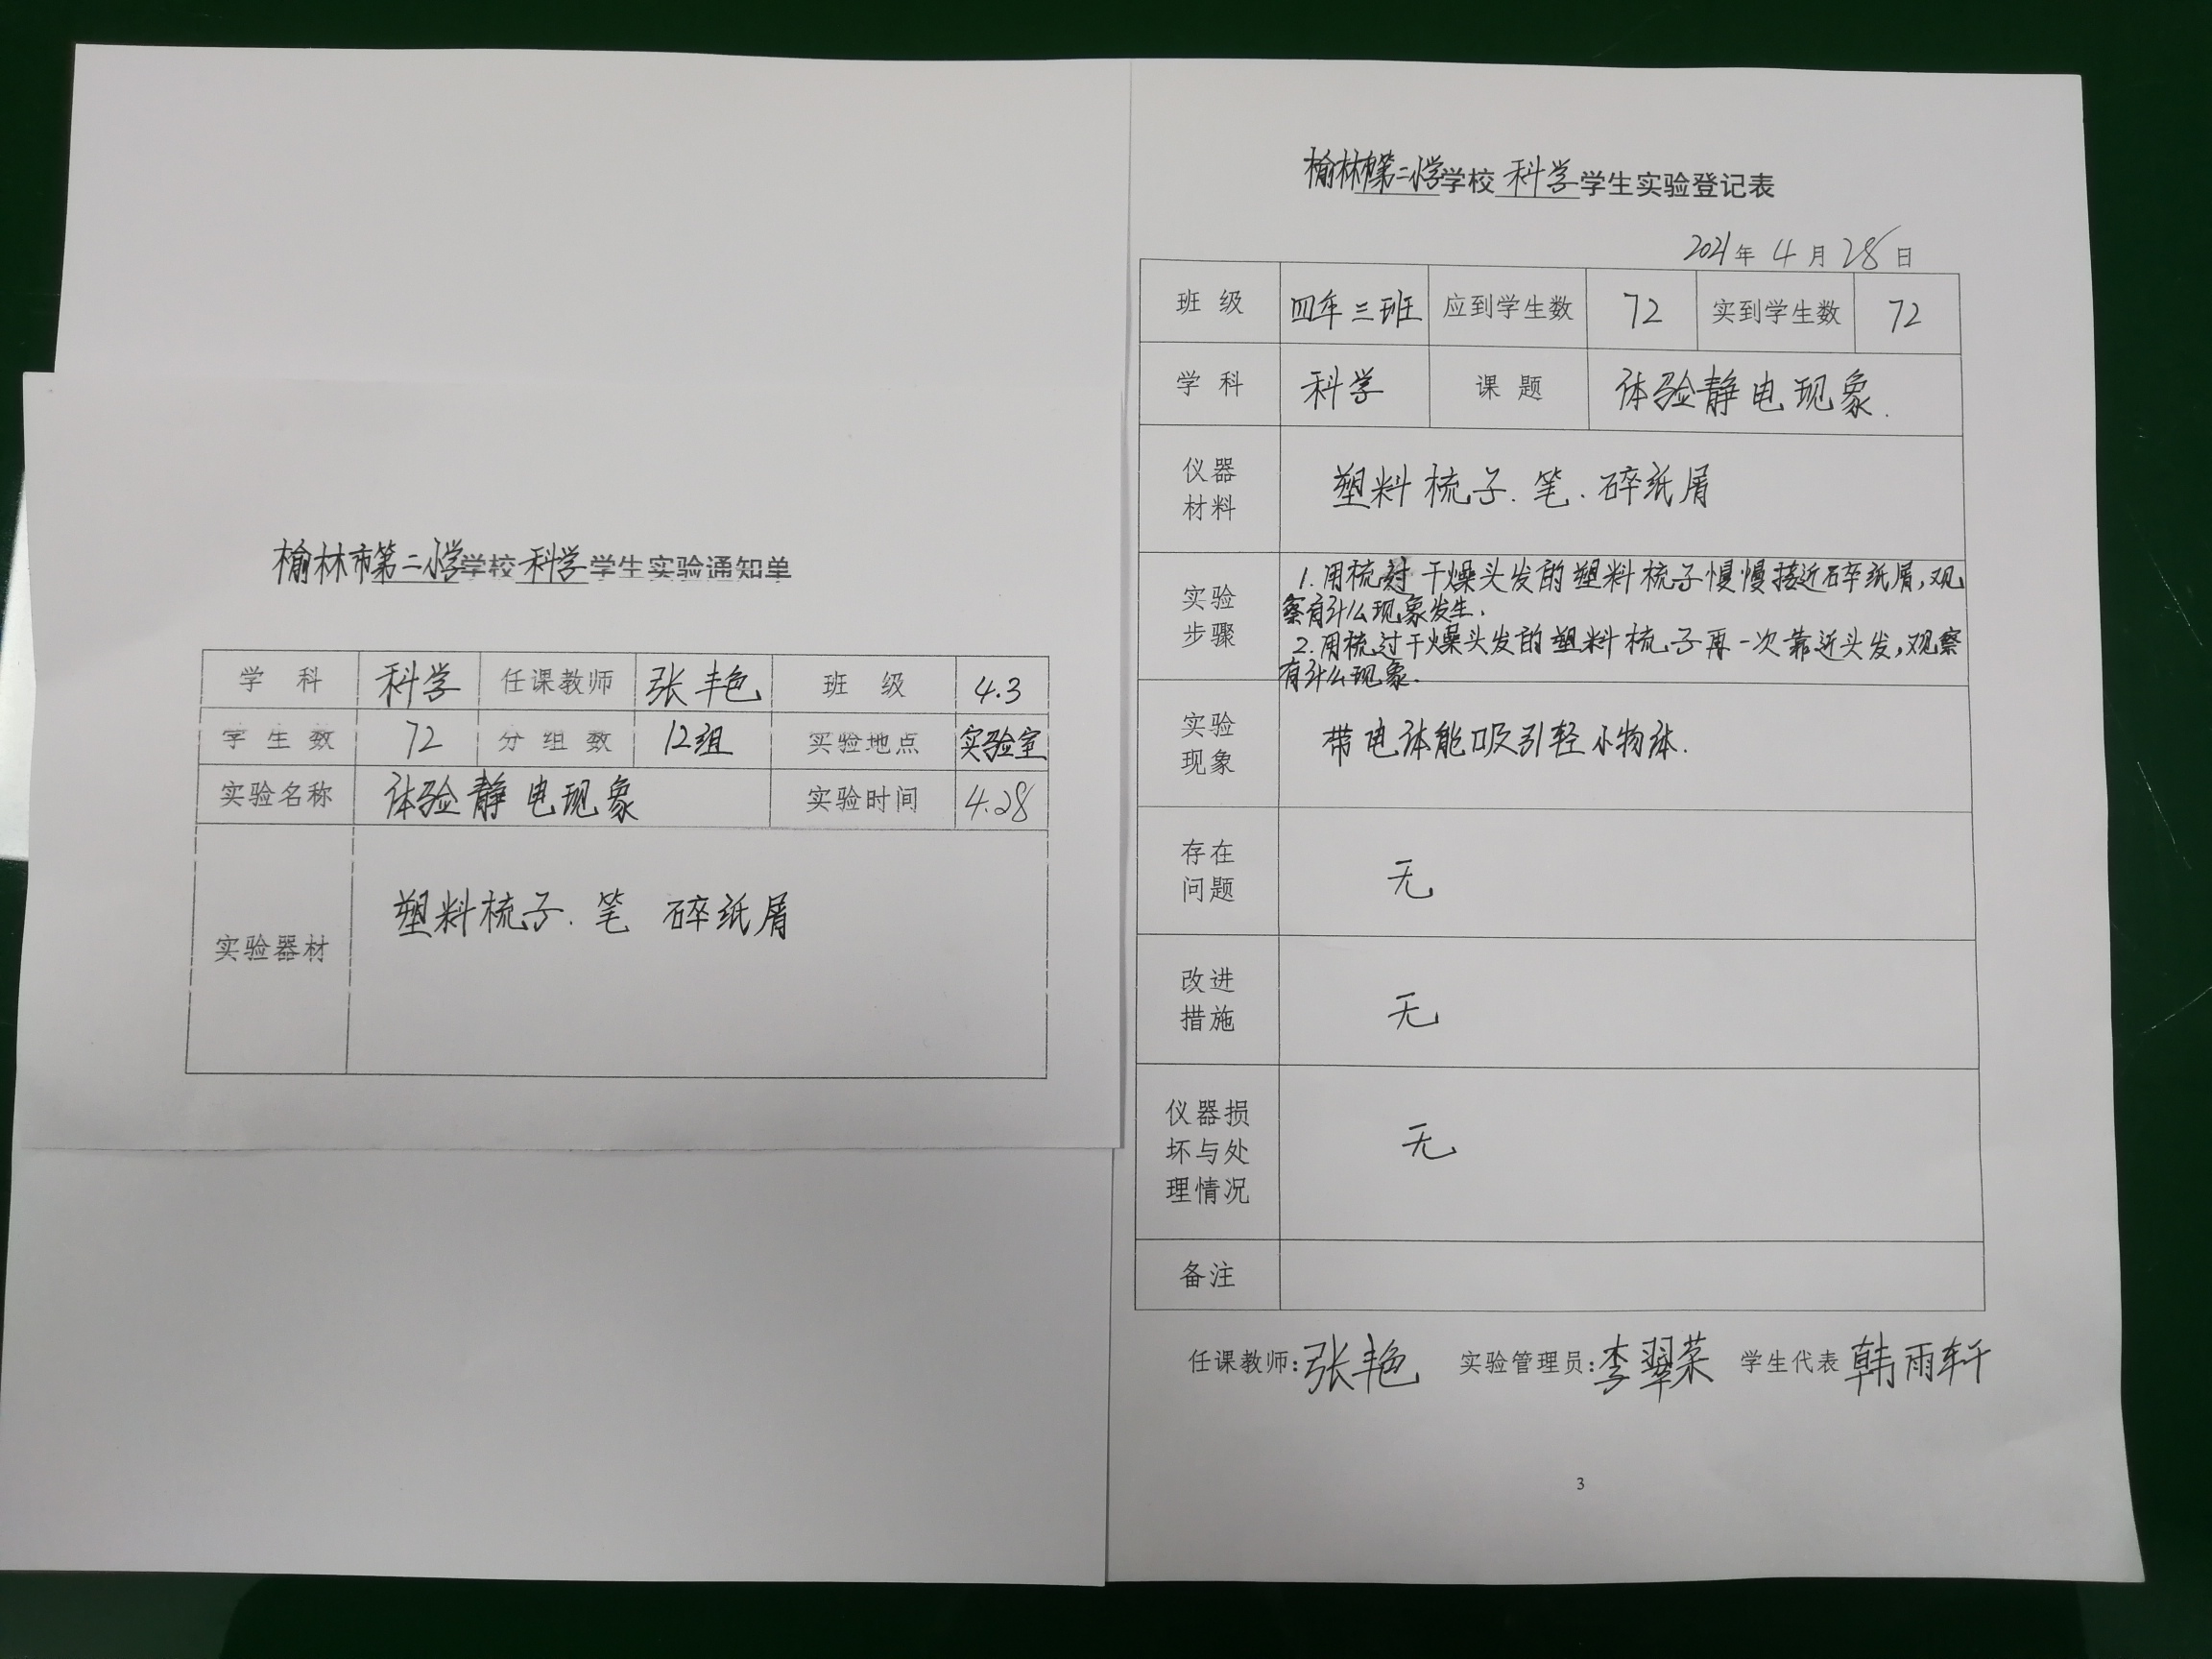 榆林市第二小学学校 科学 学生实验通知单
学 科 科学 任课教师 张艳 班 级 4.3
学生数 72 分组数 12组 实验地点 实验室
实验名称 体验静电现象 实验时间 4.28
实验器材 塑料梳子.笔 碎纸屑
榆林市第二小学学校 科学 学生实验登记表
2021年 4 月 28 日
班 级 四年三班 应到学生数 72 实到学生数 72
学 科 科学 课 题 体验静电现象.
仪器
材料
塑料梳子.笔.碎纸屑
实验
步骤
1.用梳过干燥头发的塑料梳子慢慢接近碎纸屑,观
察有什么现象发生.
2.用梳过干燥头发的塑料梳子再一次靠近头发,观察
有什么现象.
实验
现象
带电体能吸引轻小物体.
存在
问题
无
改进
措施
无
仪器损
坏与处
理情况
无
备注
任课教师:张艳 实验管理员:李翠荣 学生代表 韩雨轩
3